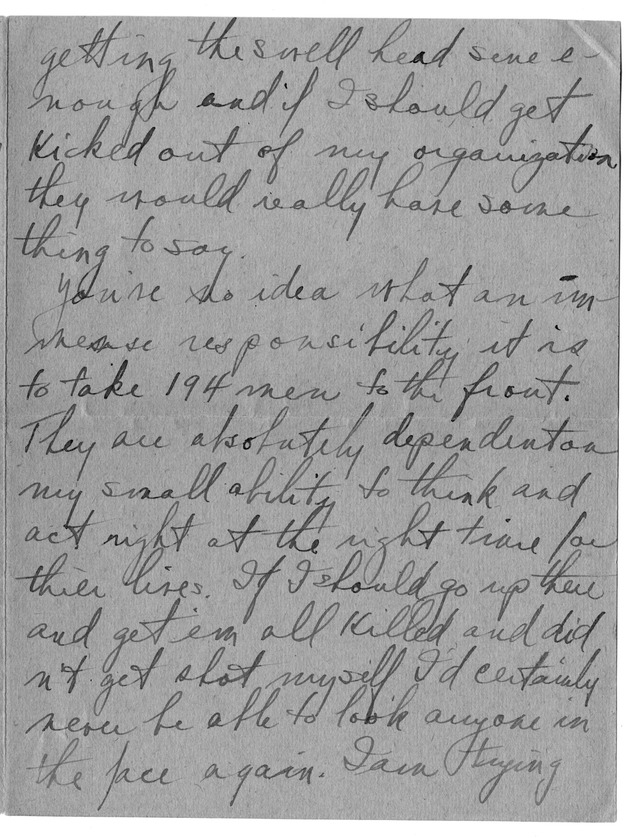 getting the swell head sure e-
nough and if I should get
Kicked out of my organization
they would really have some
thing to say.
You've no idea what an im-
mense responsibility it is
to take 194 men to the front.
They are absolutely dependent on
my small ability to think and
act right at the right time for
thier lives. If I should go up there
and get 'em all Killed and did
n't get shot myself I'd certainly
never be able to look anyone in
the face again. I am trying